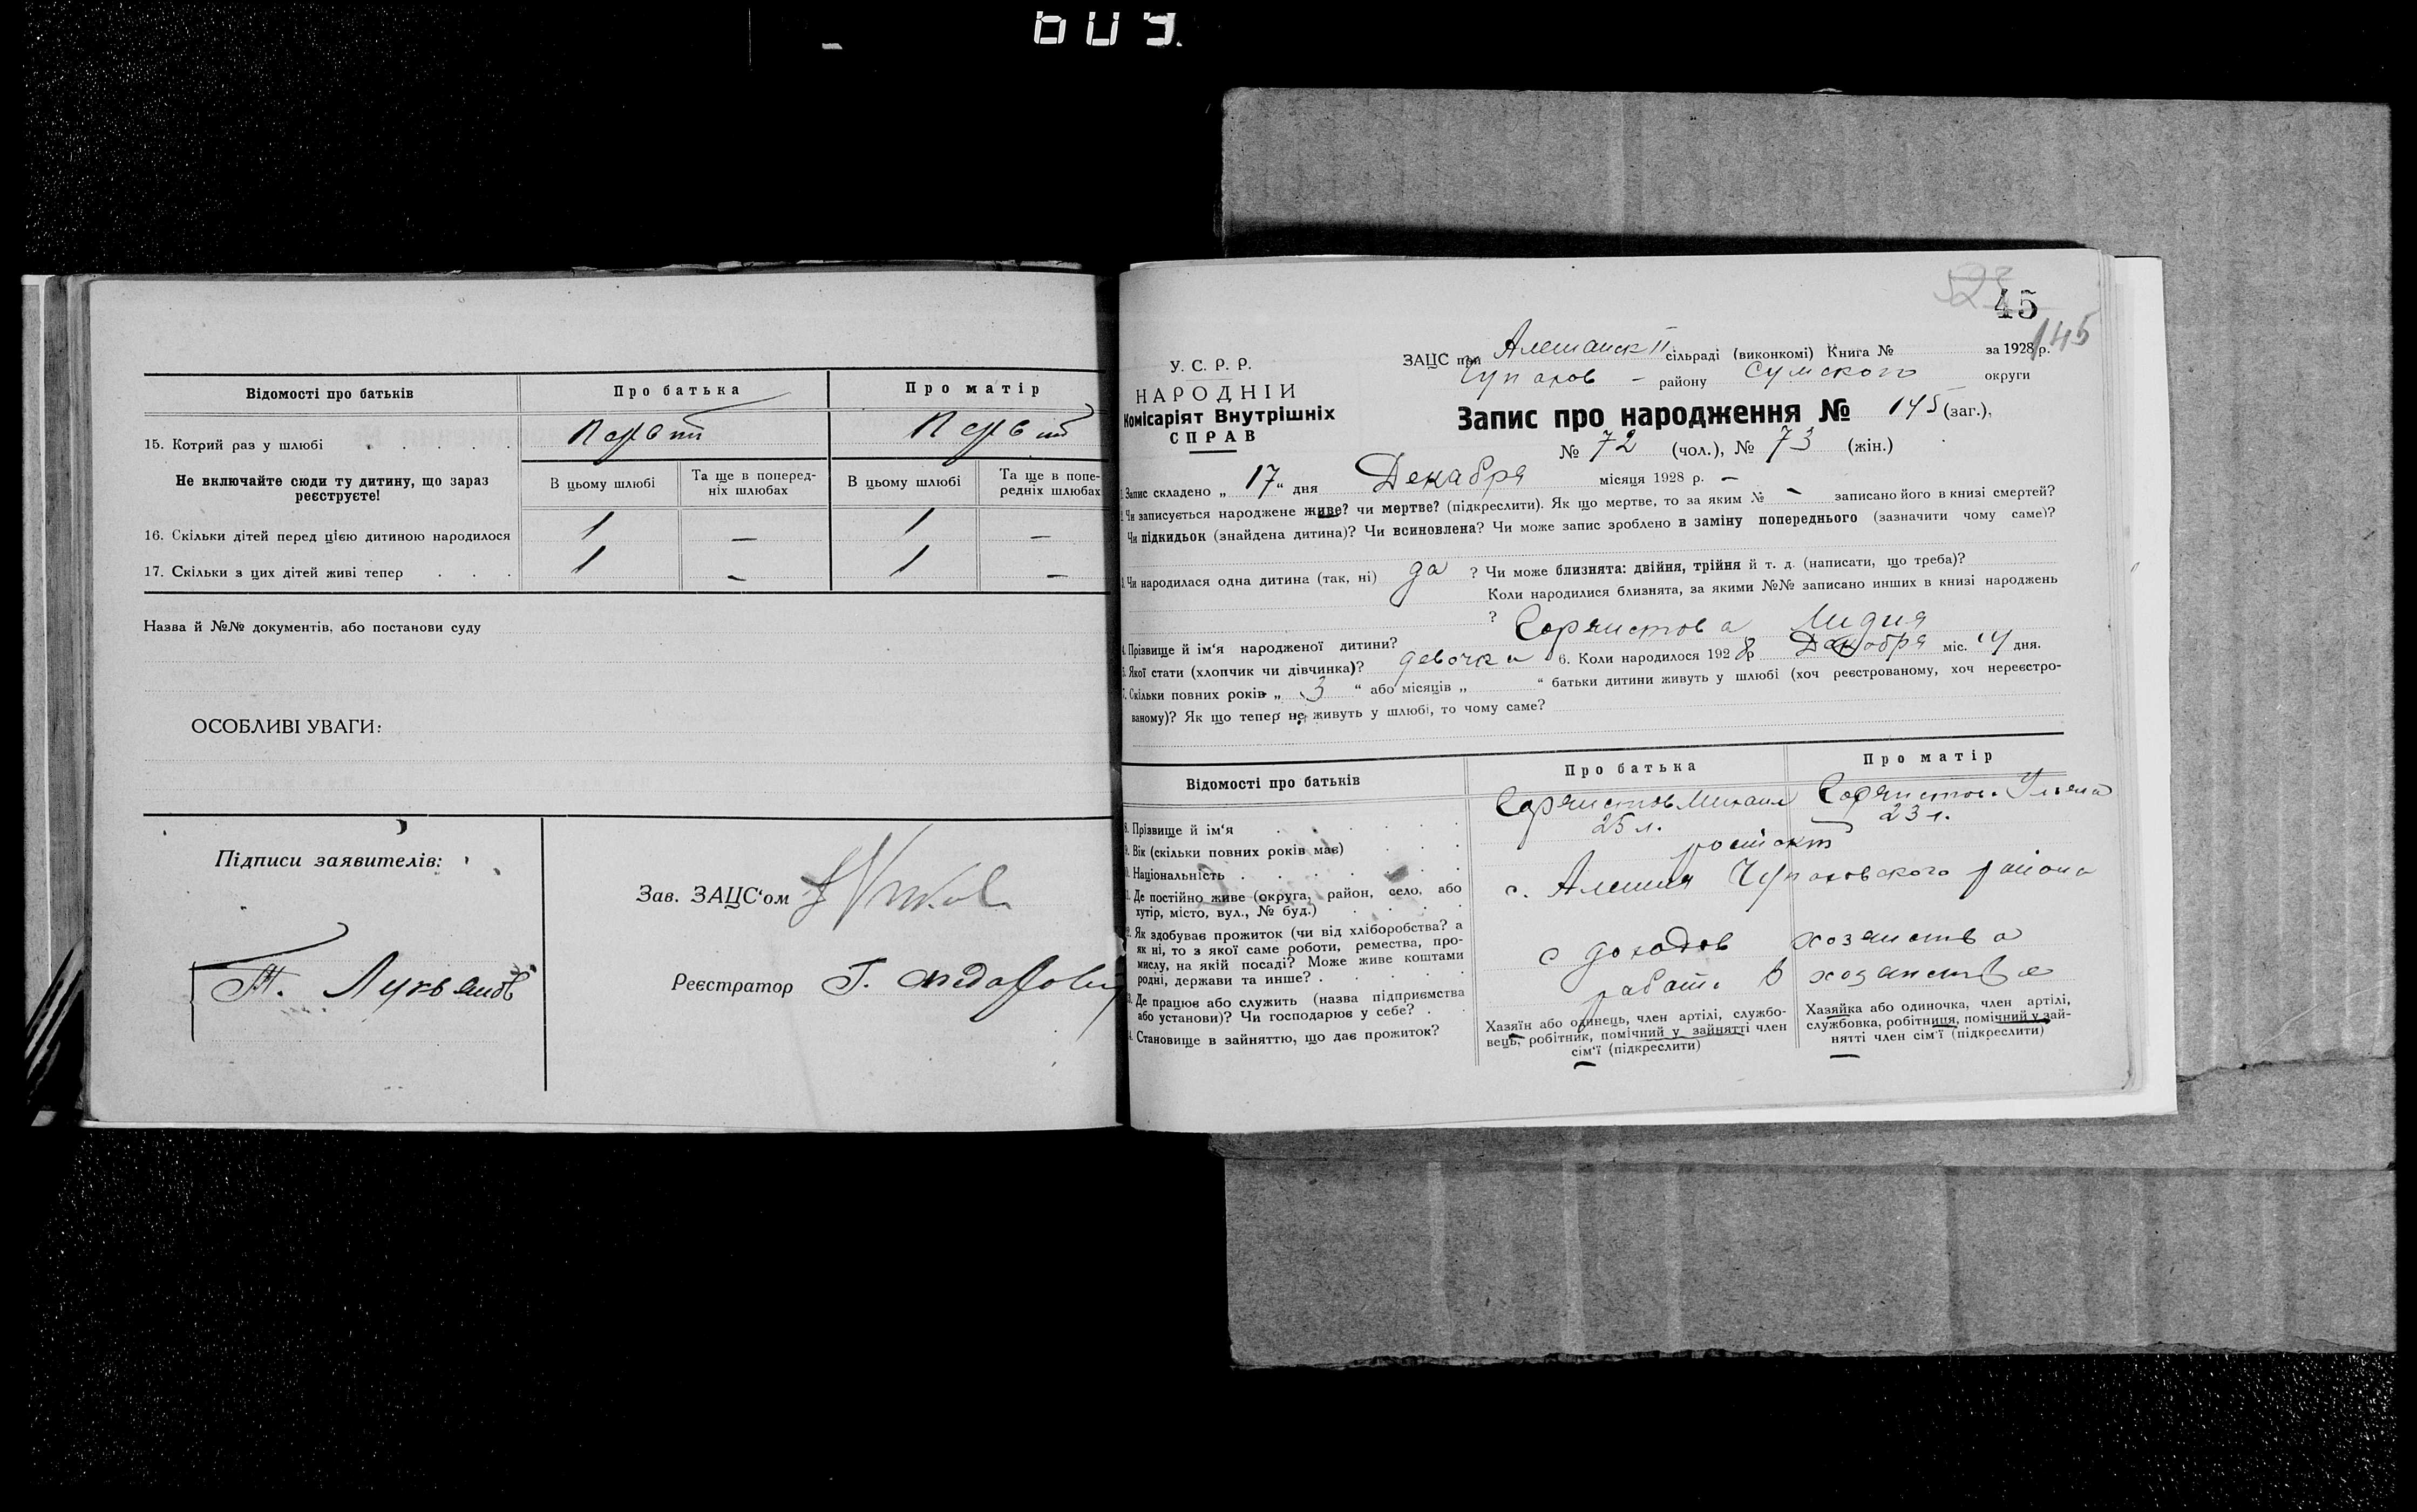 609.
Відомості про батьків
Про батька
Про матір
15. Котрий раз у шлюбі
Первый
Первый
Не включайте сюди ту дитину, що зараз
реєструєте!
В цьому шлюбі
Та ще в поперед-
ніх шлюбах
В цьому шлюбі
Та ще в попе-
редніх шлюбах
16. Скільки дітей перед цією дитиною народилося
1 — 1 —
17. Скільки з цих дітей живі тепер
1 — 1 —
Назва й №№ документів, або постанови суду
ОСОБЛИВІ УВАГИ:
Підписи заявителів:
Т. Лукьянов
Зав. ЗАЦС'ом
Реєстратор Г.
45
145
У. С. Р. Р.
НАРОДНІЙ
Комісаріят Внутрішніх
СПРАВ
ЗАЦС при Алешанск сільраді (виконкомі) Книга № за 1928 р.
Чупахов - району Сумского округи
Запис про народження № 145 (заг.),
№ 72 (чол.), № 73 (жін.)
1. Запис складено „ 17 “ дня Декабря місяця 1928 р. —
2. Чи записується народжене живе? чи мертве? (підкреслити). Як що мертве, то за яким № — записано його в книзі смертей?
Чи підкидьок (знайдена дитина)? Чи всиновлена? Чи може запис зроблено в заміну попереднього (зазначити чому саме)?
3. Чи народилася одна дитина (так, ні) да ? Чи може близнята: двійня, трійня й т. д. (написати, що треба)?
Коли народилися близнята, за якими №№ записано инших в книзі народжень
?
4. Прізвище й ім'я народженої дитини? Лидия
5. Якої стати (хлопчик чи дівчинка)? девочка 6. Коли народилося 1928 р Декабря міс. 14 дня.
7. Скільки повних років „ 3 “ або місяців „ “ батьки дитини живуть у шлюбі (хоч реєстрованому, хоч нереєстро-
ваному)? Як що тепер не живуть у шлюбі, то чому саме?
Відомості про батьків
Про батька
Про матір
8. Прізвище й ім'я
Михаил
9. Вік (скільки повних років має)
25 л.
23 л.
10. Національність
11. Де постійно живе (округа, район, село, або
хутір, місто, вул., № буд.)
с. Алешня Чупаховского района
12. Як здобуває прожиток (чи від хліборобства? а
як ні, то з якої саме роботи, ремества, про-
мислу, на якій посаді? Може живе коштами
родні, держави та инше?
с доходов хозяиства
13. Де працює або служить (назва підприємства
або установи)? Чи господарює у себе?
работ. в хозаистве
14. Становище в зайняттю, що дає прожиток?
Хазяїн або одинець, член артілі, службо-
вець, робітник, помічний у зайнятті член
сім'ї (підкреслити)
Хазяйка або одиночка, член артілі,
службовка, робітниця, помічний у зай-
нятті член сім'ї (підкреслити)